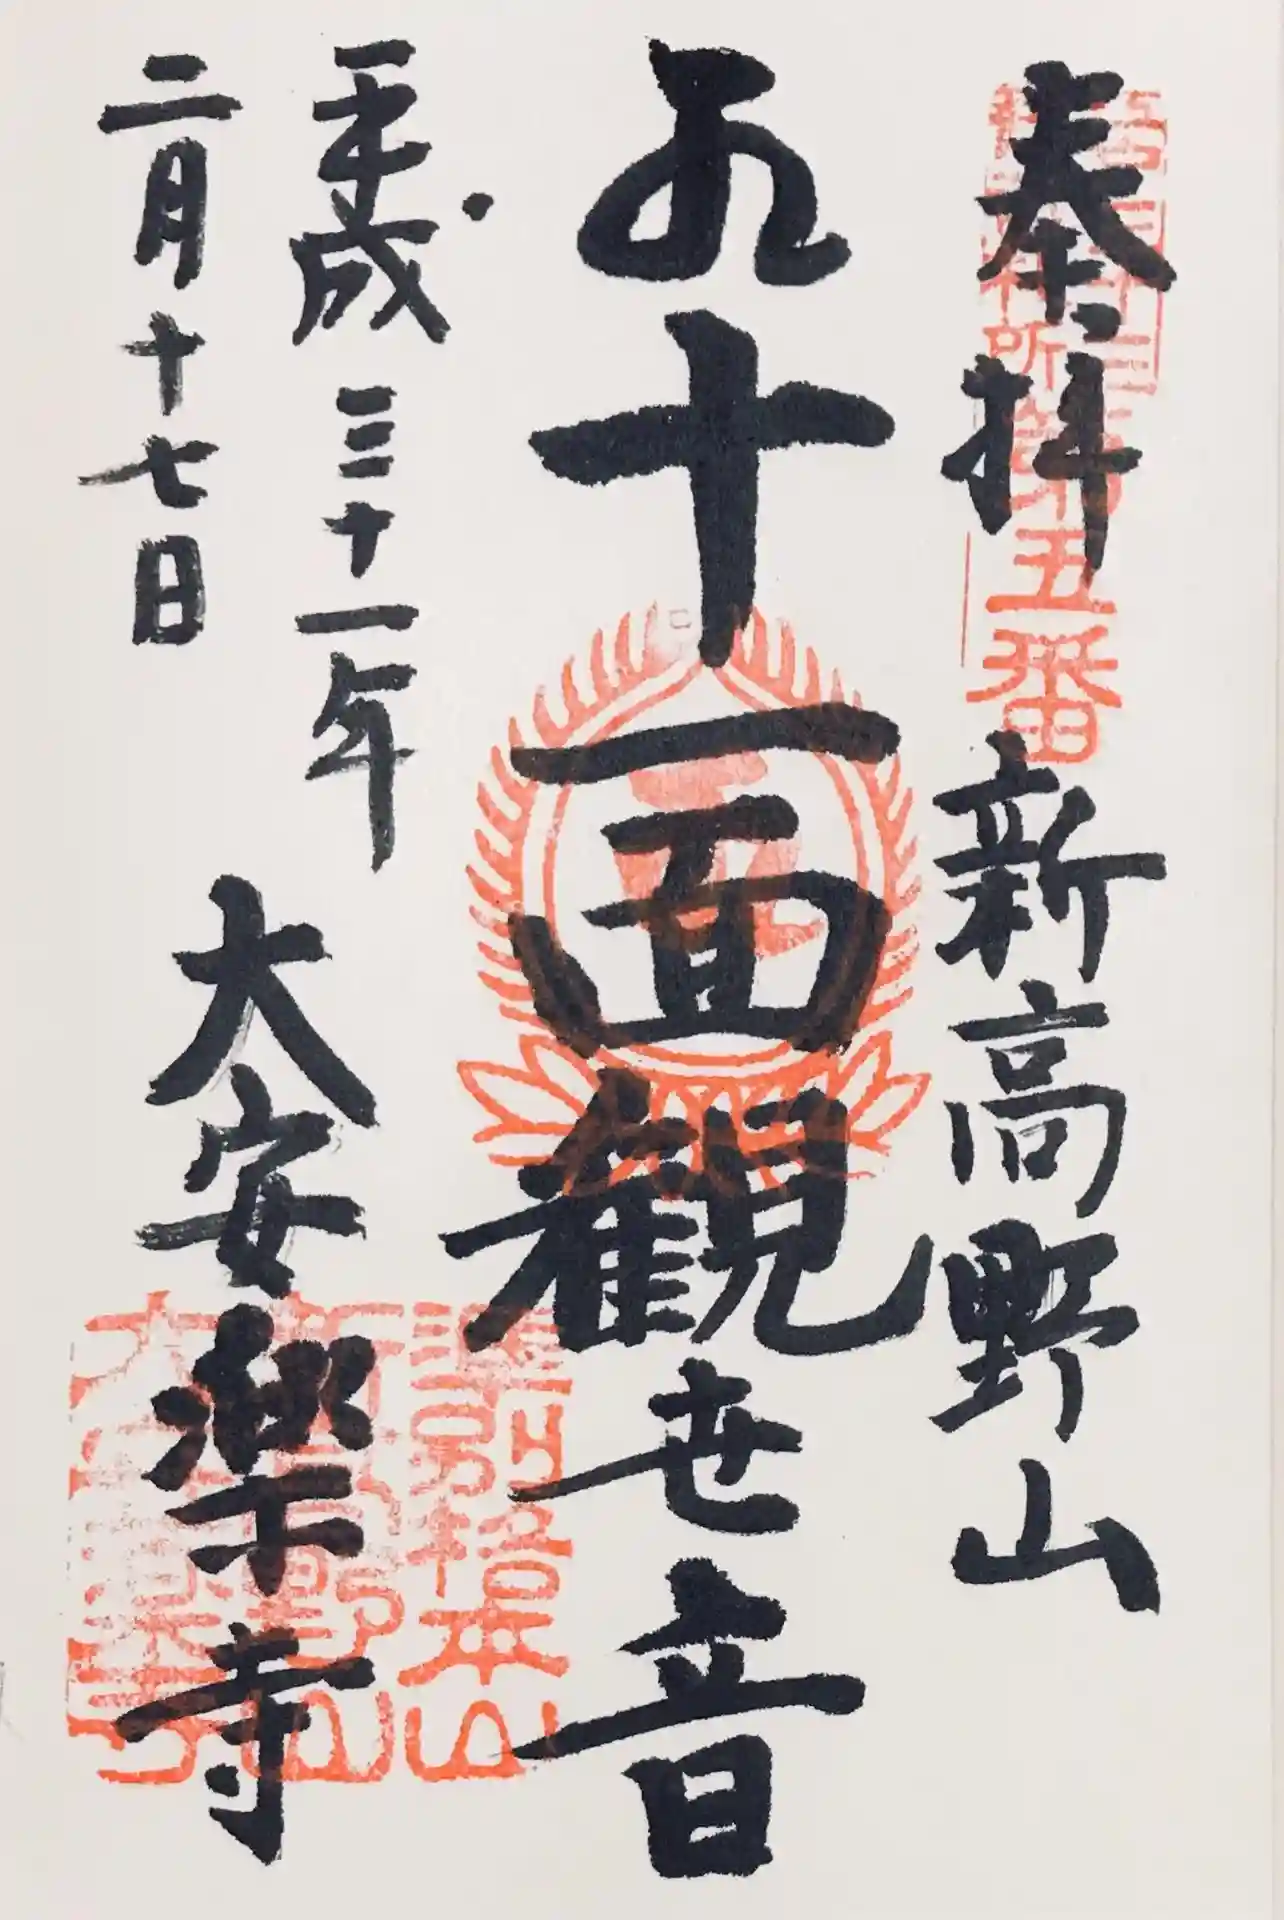 奉拝
新高野山
十一面観世音
平成三十一年
二月十七日
大安楽寺
第五番